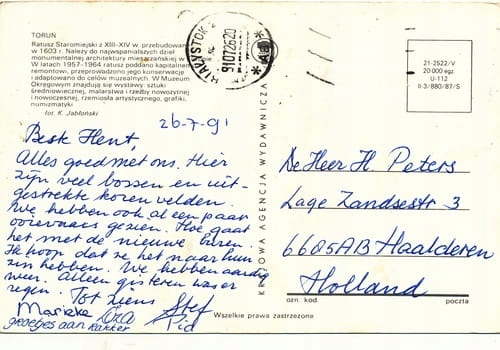 TORUŃ
Ratusz Staromiejski z XIII-XIV w. przebudowany
w 1603 r. Należy do najwspanialszych dzieł
monumentalnej architektury mieszczańskiej w
W latach 1957-1964 ratusz poddano kapitalnemu
remontowi, przeprowadzono jego konserwację
i adaptowano do celów muzealnych. W Muzeum
Okręgowym znajdują się wystawy: sztuki
średniowiecznej, malarstwa i rzeźby nowożytnej
i nowoczesnej, rzemiosła artystycznego, grafiki,
numizmatyki
fot. K. Jabłoński
BIAŁYSTOK 2
91072620
21-2522/V
20 000 egz
U-112
II-3/880/87/S
26-7-91
Beste Hent,
Alles goed met ons. Hier
zijn veel bossen en uit-
gestrekte koren velden.
We hebben ook al een paar
ooievaars gezien. Hoe gaat
het met de nieuwe buren.
Ik hoop dat ze het naar hun
zin hebben. We hebben aardig
weer. Alleen gisteren was er
regen. Tot ziens
Marieke Stef
groetjes aan Rakker
KRAJOWA AGENCJA WYDAWNICZA
De Heer H. Peters
Lage Zandsestr 3
6685AB Haalderen
Holland
ozn. kod. poczta
Wszelkie prawa zastrzeżone